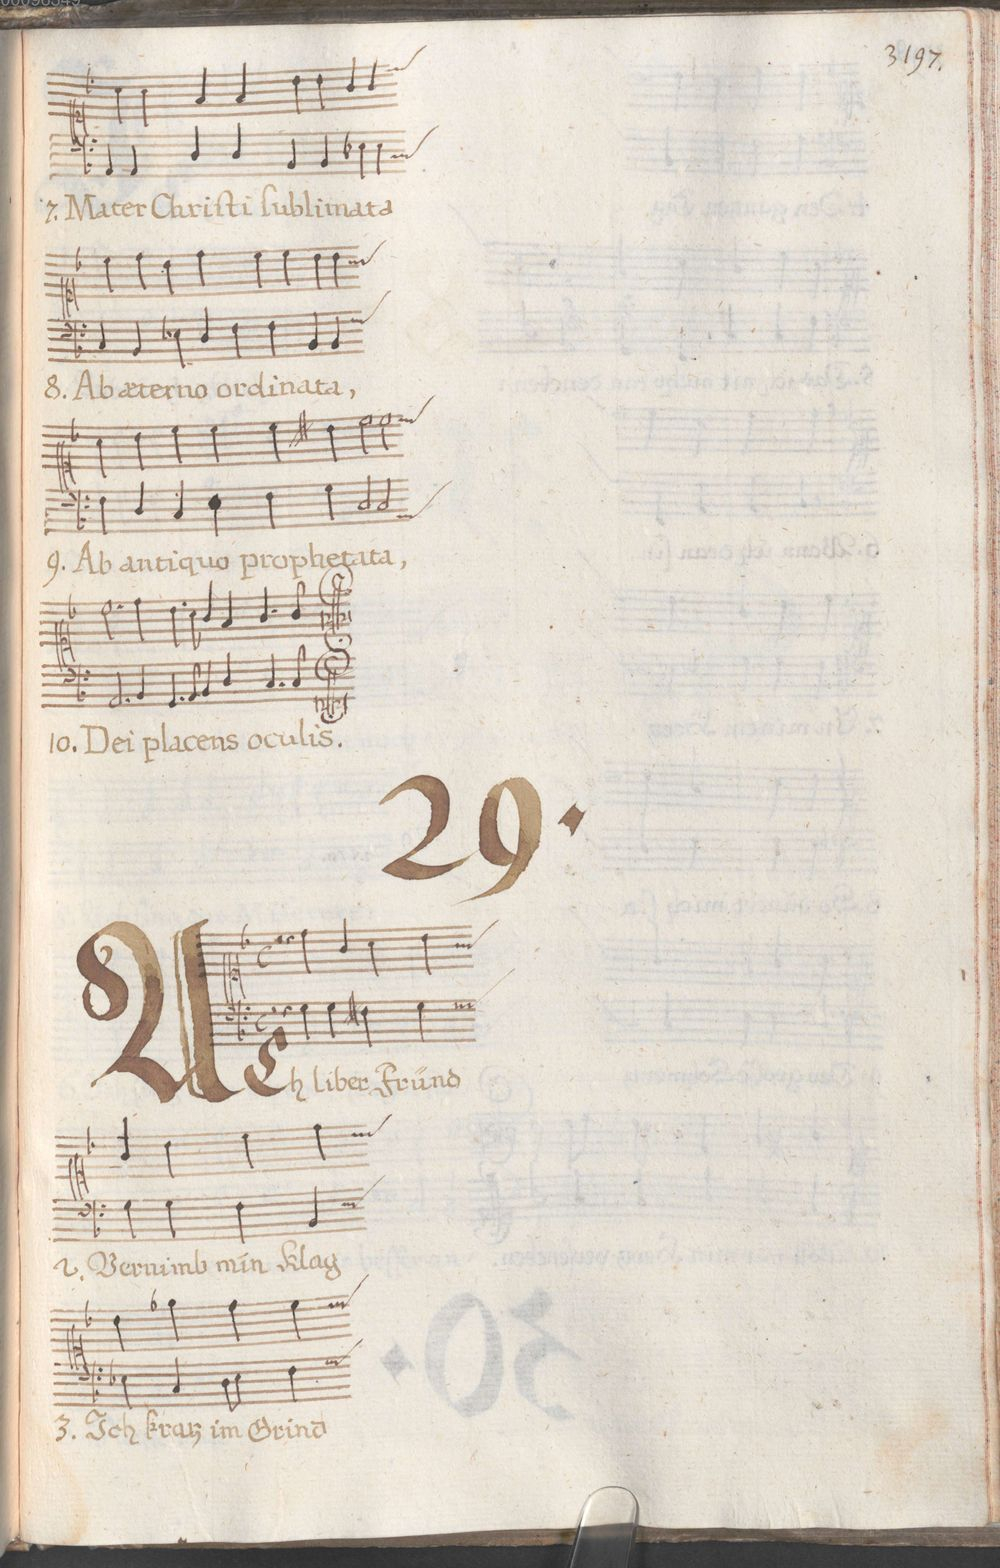 3197.
7. Mater Chriſti ſublimata
8. Ab æterno ordinata,
9. Ab antiquo prophetata,
10. Dei placens oculis.
29.
Ach liber Fründ
2. Vernimb min Klag
3. Ich kratz im Grind